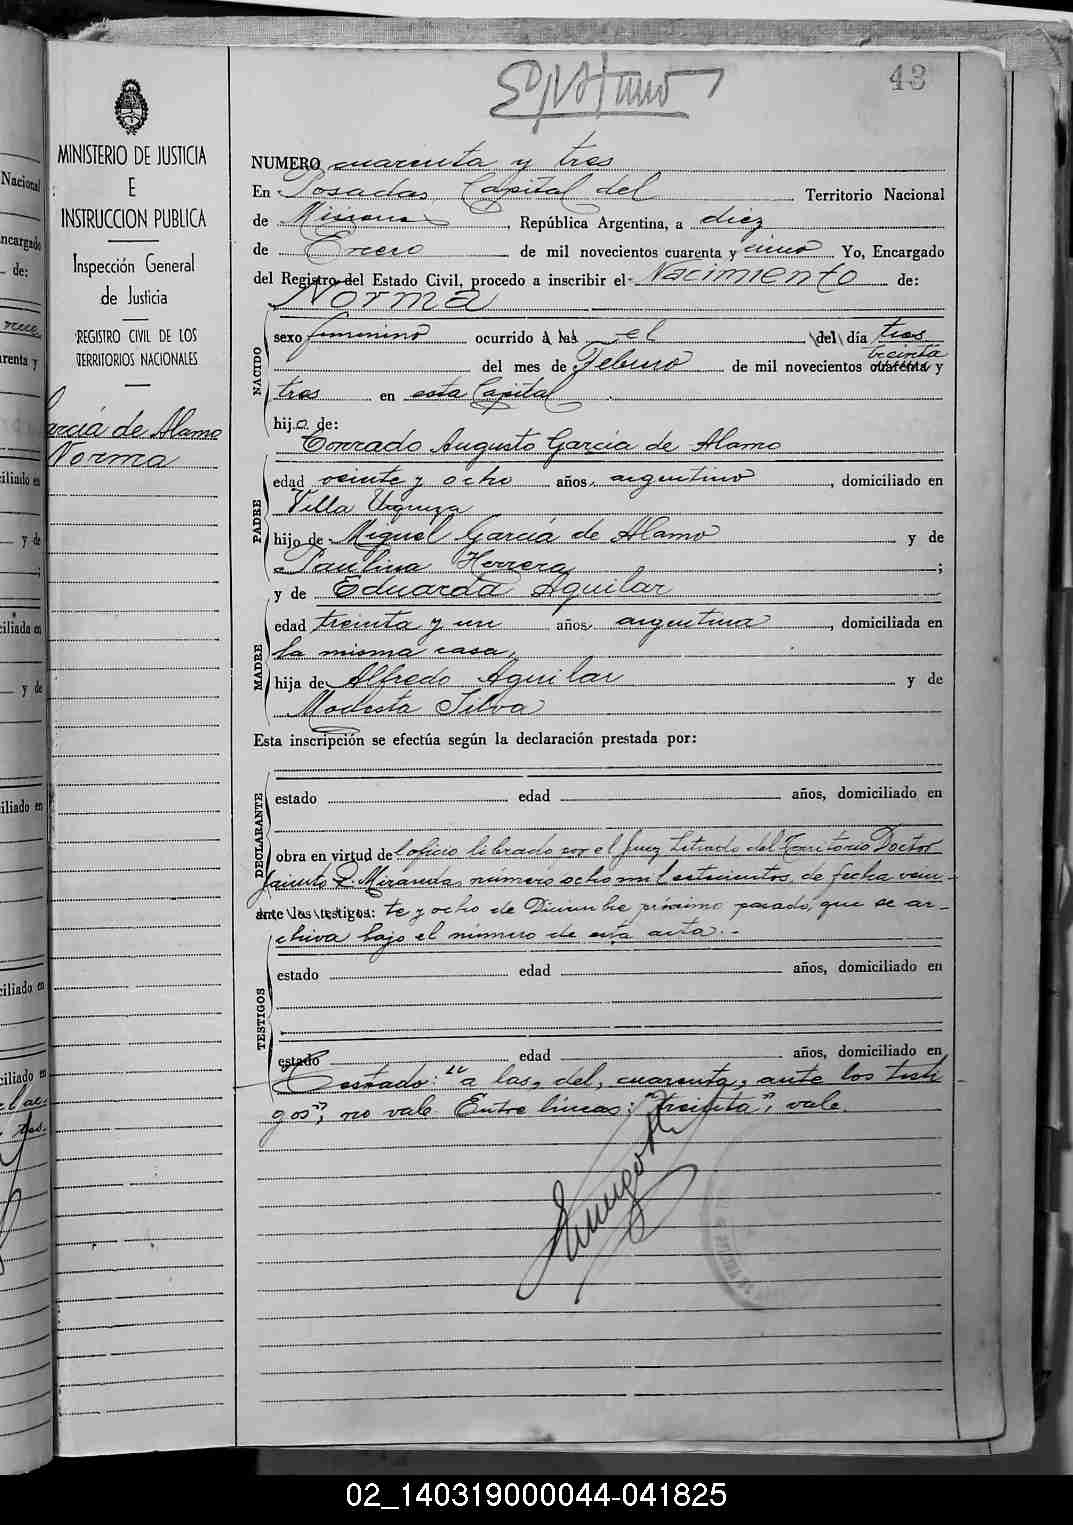 43
MINISTERIO DE JUSTICIA
E
INSTRUCCION PUBLICA
Inspección General
de Justicia
REGISTRO CIVIL DE LOS
TERRITORIOS NACIONALES
García de Alamo
Norma
NUMERO cuarenta y tres
En Posadas, Capital del Territorio Nacional
de Misiones, República Argentina, a diez
de Enero de mil novecientos cuarenta y cinco Yo, Encargado
del Registro del Estado Civil, procedo a inscribir el Nacimiento de:
Norma
NACIDO
sexo femenino ocurrido á las el del día tres
treinta
del mes de Febrero de mil novecientos cuarenta y
tres en esta Capital
hija de:
Conrado Augusto García de Alamo
PADRE
edad veinte y ocho años, argentino, domiciliado en
Villa Urquiza
hijo de Miguel García de Alamo y de
Paulina Herrera;
y de Eduarda Aguilar
MADRE
edad treinta y un años, argentina, domiciliada en
la misma casa,
hija de Alfredo Aguilar y de
Modesta Silva
Esta inscripción se efectúa según la declaración prestada por:
DECLARANTE
estado edad años, domiciliado en
obra en virtud del oficio librado por el Juez Letrado del Territorio Doctor
Jacinto R. Miranda, número ocho mil setecientos, de fecha vein-
ante los testigos: te y ocho de Diciembre próximo pasado, que se ar-
chiva bajo el número de esta acta.-
TESTIGOS
estado edad años, domiciliado en
estado edad años, domiciliado en
Testado: "a las, del, cuarenta, ante los testi
gos", no vale. Entre líneas: "treinta", vale.
02_140319000044-041825